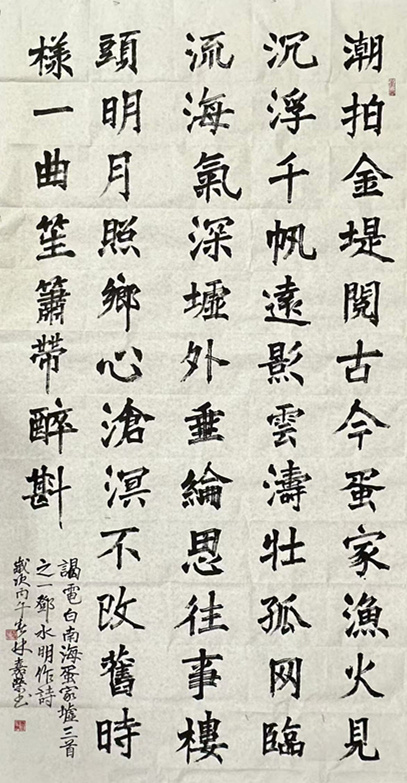 潮拍金堤閱古今蛋家漁火見
沉浮千帆遠影雲濤壯孤网臨
流海氣深墟外垂綸思往事樓
頭明月照鄉心滄溟不改舊時
樣一曲笙簫帶醉斟
謁電白南海蛋家墟三首
之一鄧水明作詩
歲次丙午春林壽榮書